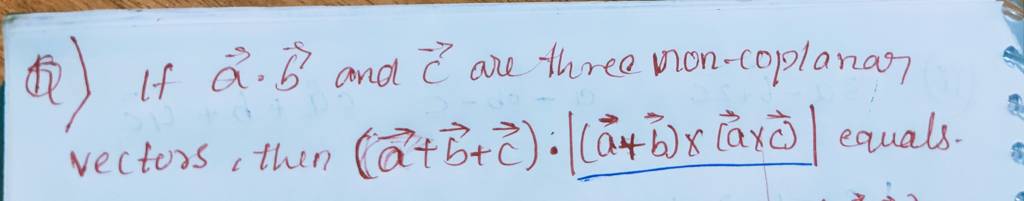 Q) If a⃗. b⃗ and c⃗ are three non-coplanar
vectors, then (a⃗+b⃗+c⃗):|(a⃗+b⃗)x (a⃗xc⃗)| equals.